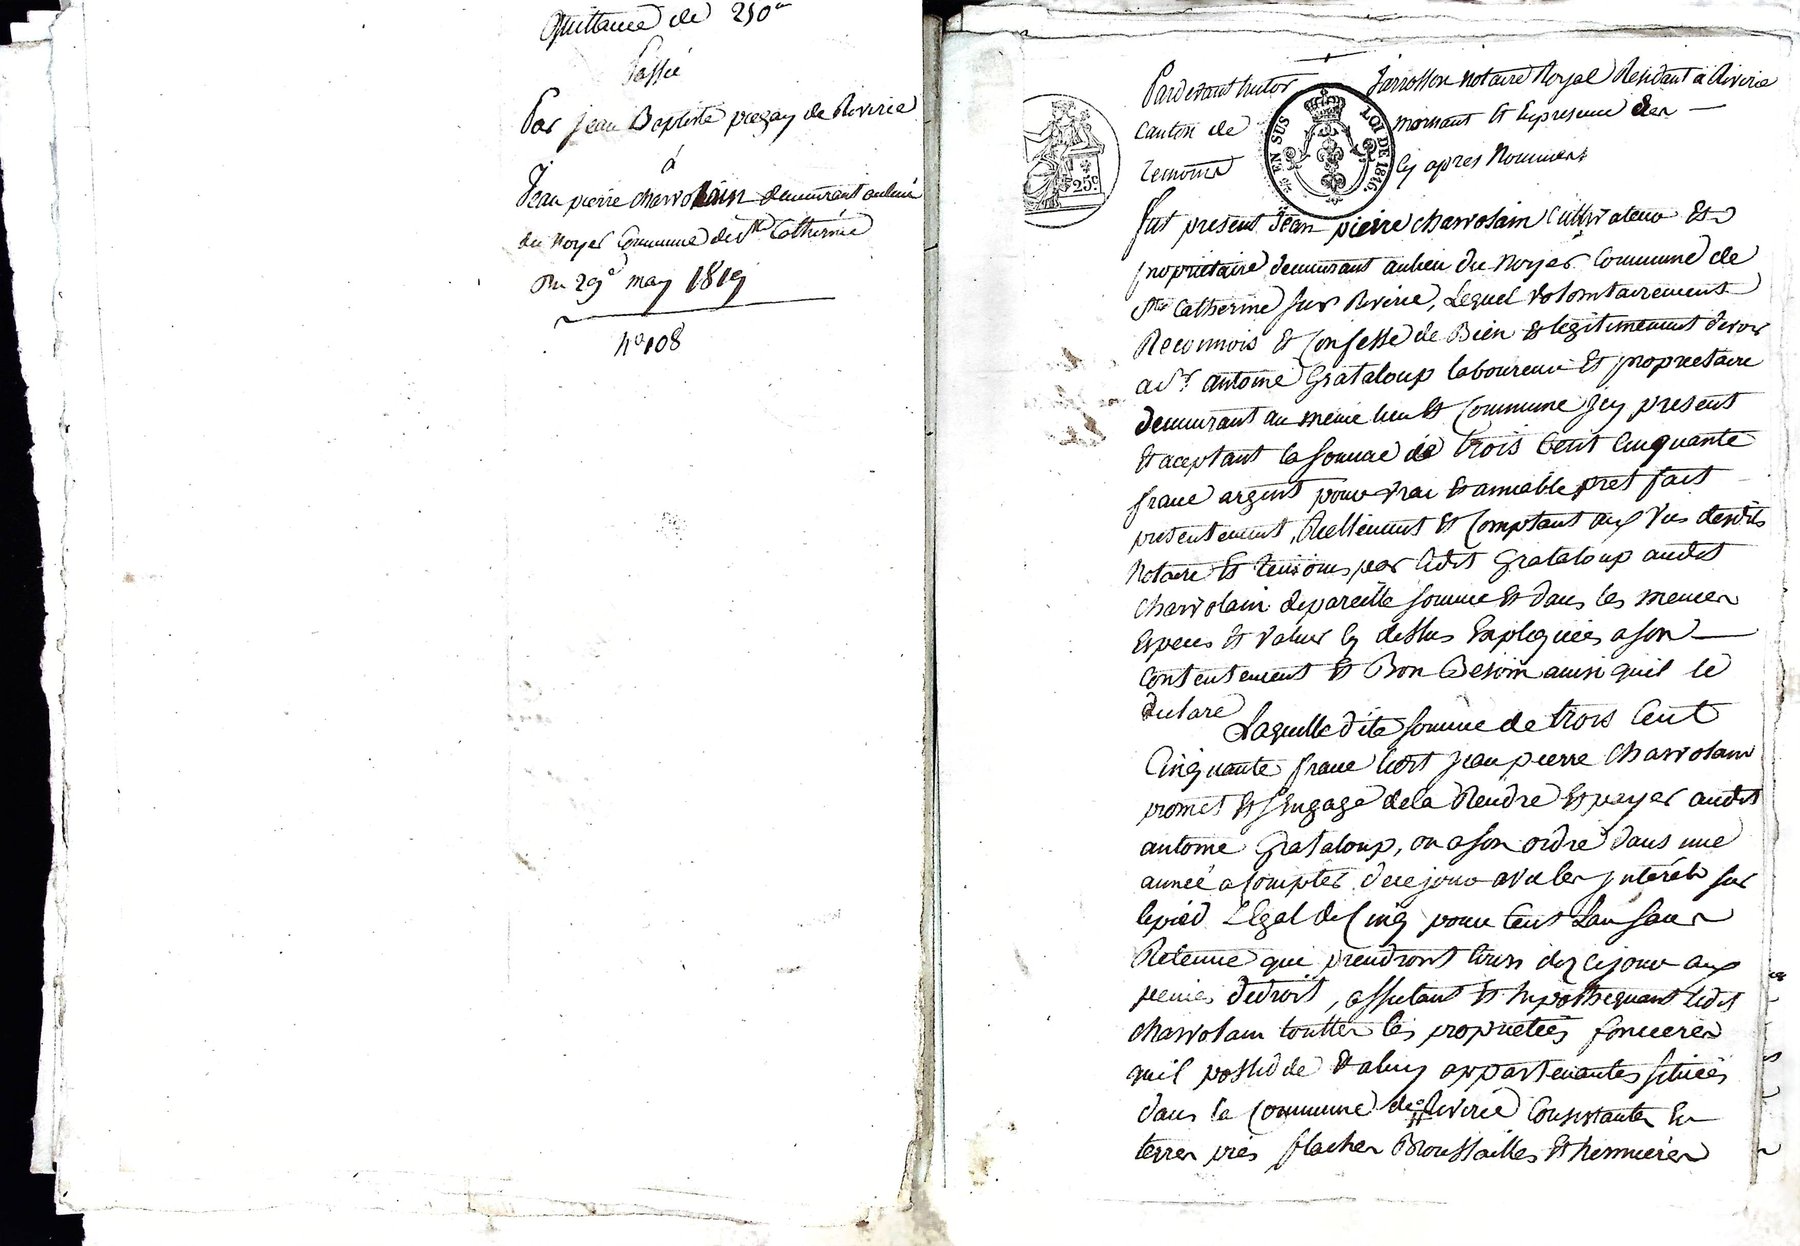 Quittance de 250
Passée
Par jean Baptiste pregay de Riverie
á
Jean pierre charvolain demeurant aulieu
du Noyer Commune de Ste Catherine
Du 29e may 1819
no 108
Pardevant hutor Jarrosson notaire Royal Residant a Riverie
Canton de mornant Et Enpresence der
Temoins Cy apres Nommers
25c.
EN SUS LOI DE 1816.
fut present Jean pierre charvolain Cultivateur Et
proprietaire demeurant aulieu du Noyer Commune de
Ste Catherine sur Riverie, Lequel volontairement
Reconnois Et Confesse de Bien Et legitimement devoir
a Sr. antoine Grataloup laboureur Et proprietaire
demeurant au meme lieu Et Commune Jcy present
Et aceptant la somme de trois Cent Cinquante
franc argent pour vrai Et amiable pret fait
presentement, Reellement Et Comptant aux vus desdits
Notaire Et temoins par ledit Grataloup audit
charvolain depareille somme Et dans les memer
Especes Et valeur Cy dessus Expliquées a son
Contentement Et Bon Besoin ainsi quil le
declare
Laquelle dite somme de trois Cent
Cinquante franc ledit Jean pierre Charvolain
promet Et s'Engage dela Rendre Et payer audit
antoine Grataloup, ou a son ordre dans une
année a Compter de ce jour avec ler Jntérêts sur
lepied Légal de Cinq pour Cent Lan sans
Retenue qui prendront Cours dez Cejour aux
peines dedroit, affectant Et hipothequant ledit
charvolain toutter les proprietées foncierer
quil possede Et aluy appartenantes situées
dans la Commune de Riverie Consistanter En
terrer prés flacher Broussailles Et hermierer